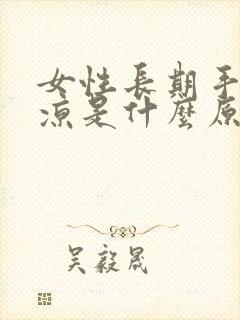 女性長期手
涼是什麼原
吳毅晟